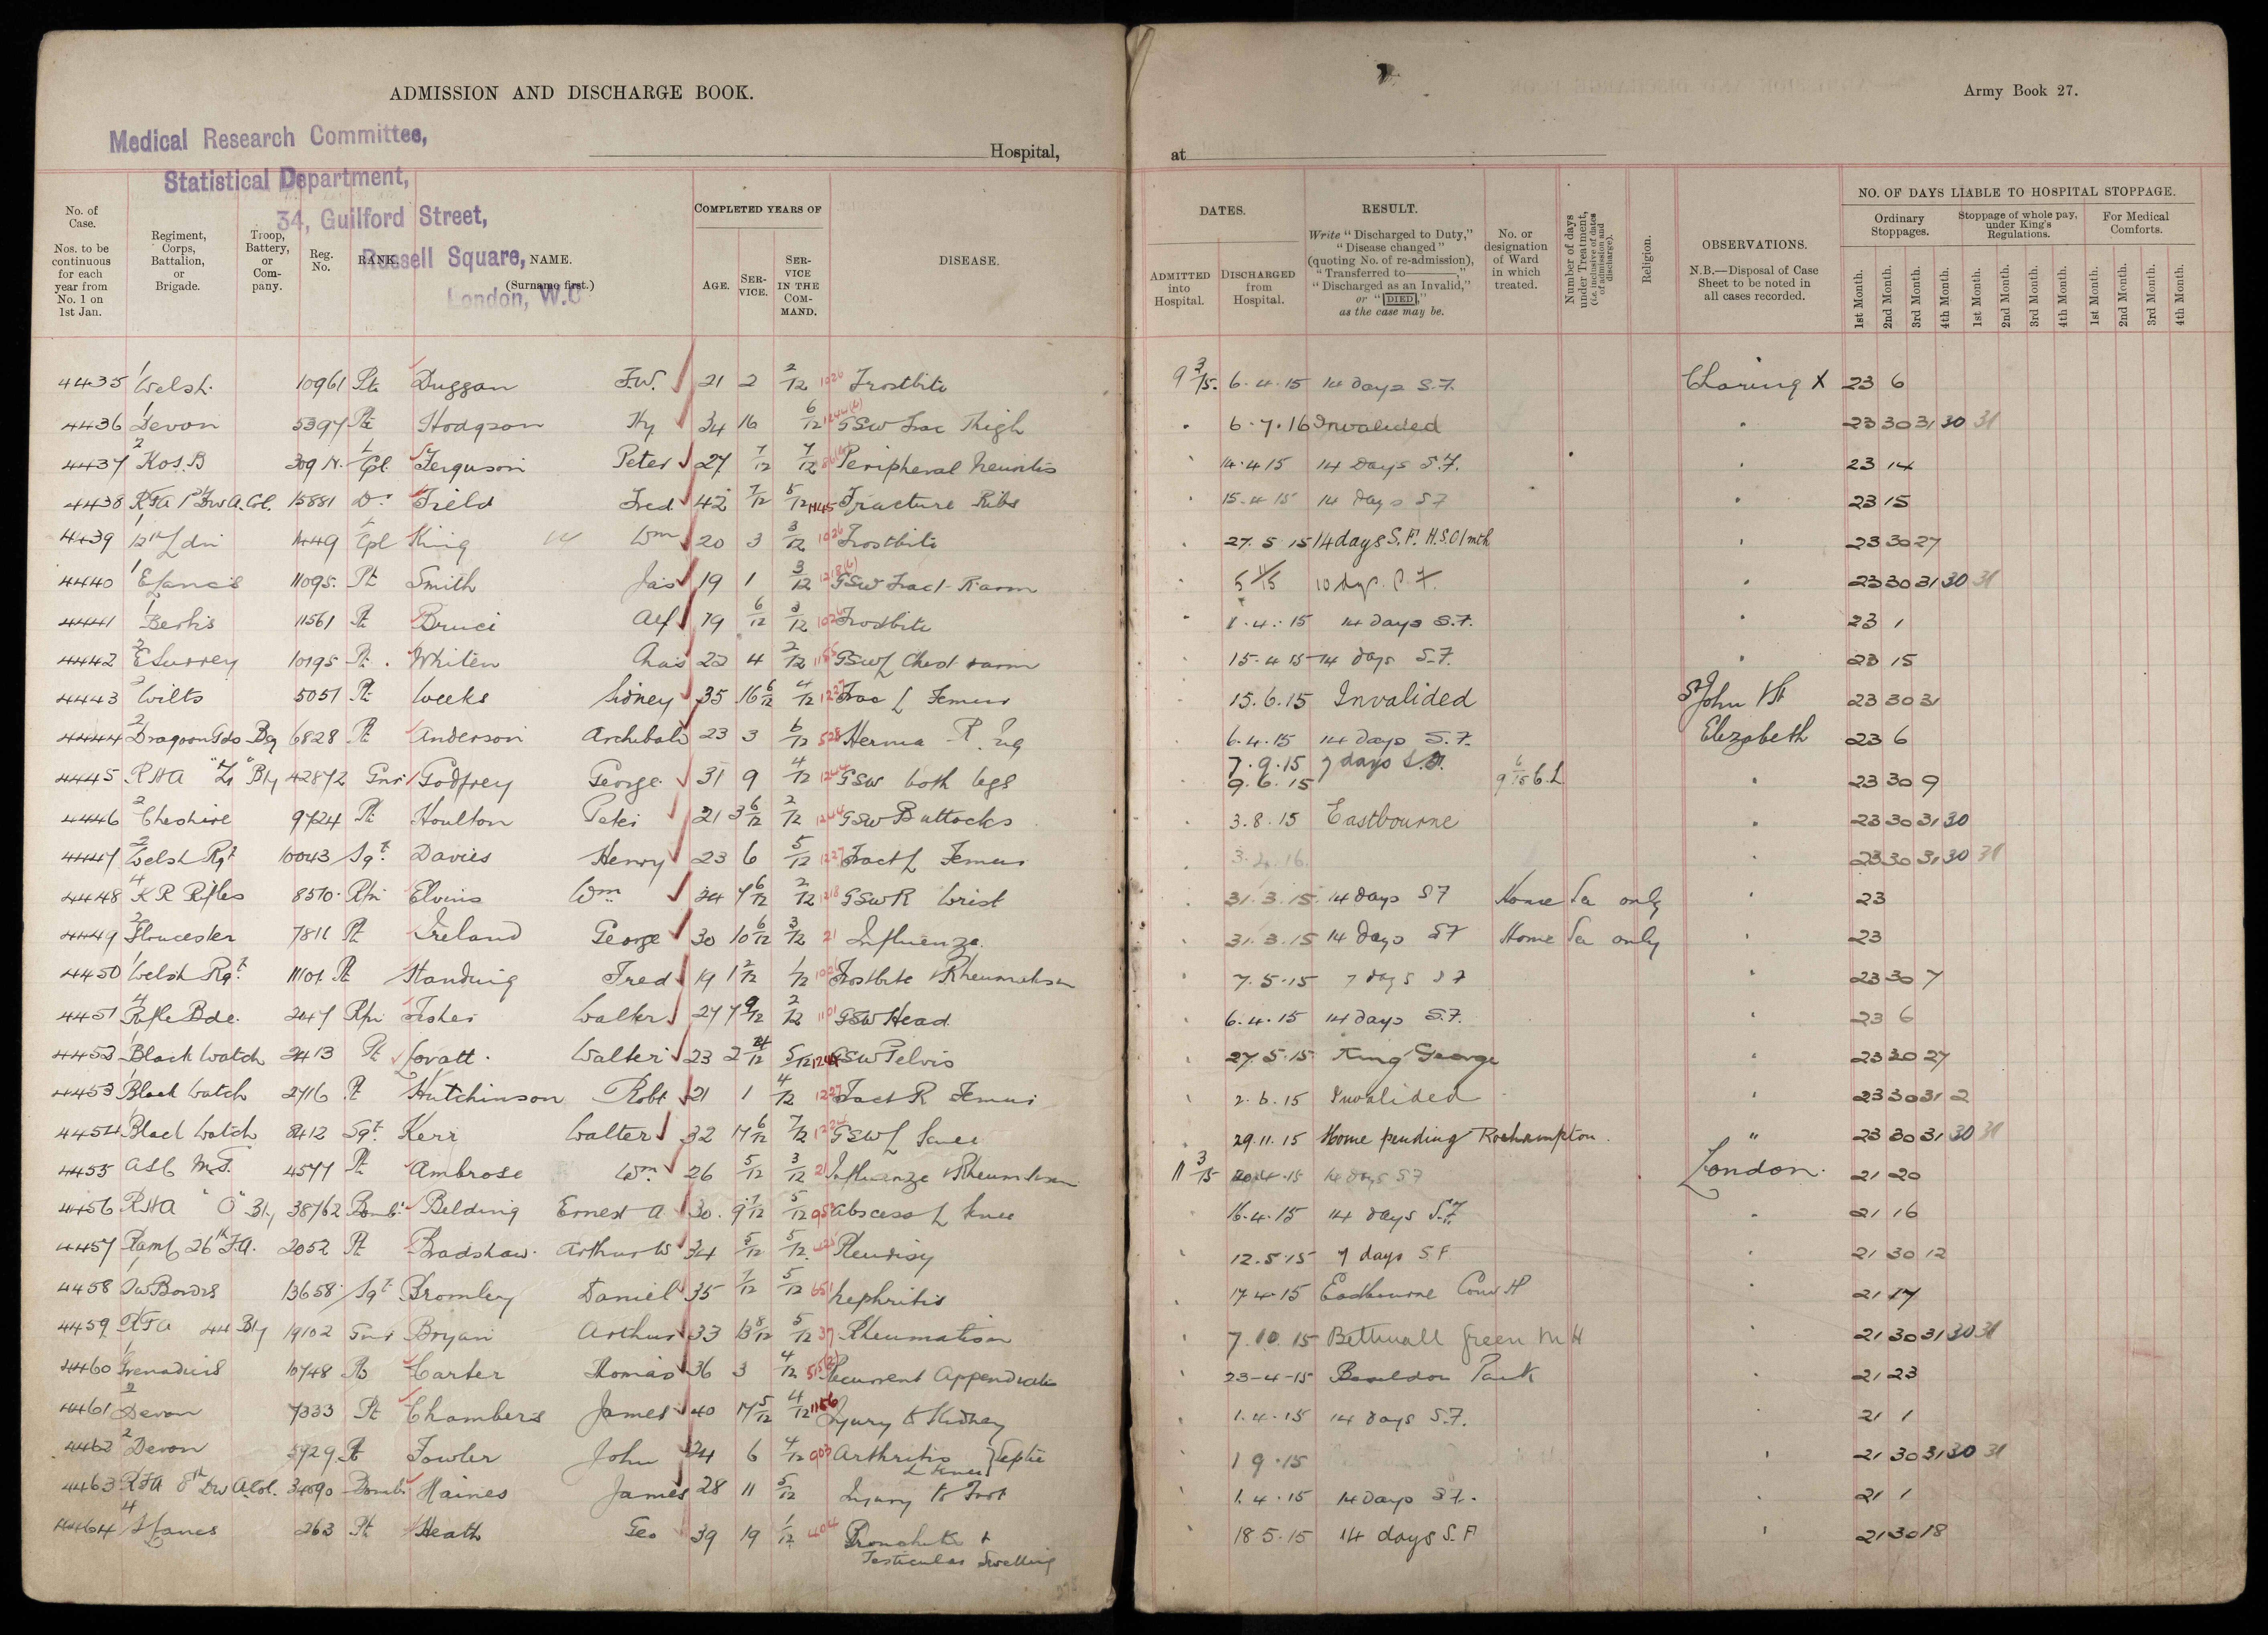 ADMISSION AND DISCHARGE BOOK.
Army Book 27.
Medical Research Committee,
Statistical Department,
34, Guilford Street,
Russell Square,
London, W.C
Hospital, at
No. of Case. Nos. to be continuous for each year from No. 1 on 1st Jan.
Regiment, Corps, Battalion, or Brigade.
Troop, Battery, or Company.
Reg. No.
RANK.
NAME. (Surname first.)
COMPLETED YEARS OF
AGE.
SERVICE.
SERVICE IN THE COMMAND.
DISEASE.
DATES.
ADMITTED into Hospital.
DISCHARGED from Hospital.
RESULT.
Write "Discharged to Duty," "Disease changed" (quoting No. of re-admission), "Transferred to———," "Discharged as an Invalid," or "DIED," as the case may be.
No. or designation of Ward in which treated.
Number of days under Treatment, (i.e. inclusive of dates of admission and discharge).
Religion.
OBSERVATIONS.
N.B.—Disposal of Case Sheet to be noted in all cases recorded.
NO. OF DAYS LIABLE TO HOSPITAL STOPPAGE.
Ordinary Stoppages.
Stoppage of whole pay, under King's Regulations.
For Medical Comforts.
1st Month. 2nd Month. 3rd Month. 4th Month. 1st Month. 2nd Month. 3rd Month. 4th Month. 1st Month. 2nd Month. 3rd Month. 4th Month.
4435 1 Welsh 10961 Pte Duggan F.W. 21 2 2/12 1026 Frostbite 9 3/15. 6.4.15 14 days S.F. Charing X 23 6
4436 1 Devon 5397 Pte Hodgson Hy 34 16 6/12 GSW Frac Thigh 6.7.16 Invalided 23 30 31 30 31
4437 2 KOSB 309 Cpl Ferguson Peter 27 7/12 7/12 Peripheral Neuritis 14.4.15 14 Days S.F. 23 14
4438 RFA 15881 Dr Field Fred 42 7/12 5/12 1145 Fracture Ribs 15.4.15 14 days SF 23 15
4439 12th Ldn 1449 Cpl King Wm 20 3 3/12 1026 Frostbite 27.5.15 14 days S.F. H.S.O 1 mth 23 30 27
4440 1 E Lancs 11095 Pt Smith Jas 19 1 3/12 1218(b) GSW Fract R arm 5 11/15 23 30 31 30 31
4441 1 Berks 11561 Pt Bruce Alf 19 6/12 3/12 Frostbite 1.4.15 14 days S.F. 23 1
4442 2 E Surrey 10195 Pt Whiten Chas 22 4 2/12 GSW L Chest & arm 15.4.15 14 days S.F. 23 15
4443 2 Wilts 5051 Pt Weeks Sidney 35 16 6/12 4/12 1227 Frac L Femur 15.6.15 Invalided St John & St 23 30 31
4444 2 Dragoon Gds 6828 Pt Anderson Archibald 23 3 6/12 528 Hernia R. Ing 6.4.15 14 days S.F. Elizabeth 23 6
4445 RHA Bty 42872 Gnr Godfrey George 31 9 4/12 1244 GSW both legs 7.9.15 7 days 9.6.15 9 6/15 23 30 9
4446 2 Cheshire 9724 Pt Houlton Peter 21 3 6/12 2/12 GSW Buttocks 3.8.15 Eastbourne 23 30 31 30
4447 2 Welsh Rgt 10043 Sgt Davies Henry 23 6 5/12 1227 Fract L Femur 23 30 31 30 31
4448 4 K R Rifles 8570 Rfn Elvins Wm 24 7 6/12 2/12 1218 GSW R Wrist 31.3.15 14 days SF Home Ser only 23
4449 2 Gloucester 7811 Pt Ireland George 30 10 6/12 3/12 21 Influenza 31.3.15 14 days SF Home Ser only 23
4450 1 Welsh Rgt 11101 Pt Standing Fred 19 1 2/12 1/12 Frostbite & Rheumatism 7.5.15 7 days SF 23 30 7
4451 4 Rifle Bde 247 Rfn Fisher Walter 27 7 9/12 2/12 1101 GSW Head 6.4.15 14 days S.F. 23 6
4452 1 Black Watch 2413 Pt Lovatt Walter 23 2 5/12 GSW Pelvis 27.5.15 King George 23 30 27
4453 1 Black Watch 2716 Pt Hutchinson Robt 21 1 4/12 1227 Fract R Femur 2.6.15 Invalided 23 30 31 2
4454 1 Black Watch 8412 Sgt Kerr Walter 32 17 6/12 7/12 GSW L Knee 29.11.15 Home pending Roehampton. " 23 30 31 30 31
4455 ASC M.T. 4577 Pt Ambrose Wm 26 5/12 3/12 21 Influenza & Rheumatism 11 3/15 20.4.15 14 days SF London. 21 20
4456 RHA "O" Bty 38762 Bomb. Belding Ernest A 30 9 7/12 5/12 Abscess L Knee 16.4.15 14 days S.F. 21 16
4457 Ramc 26th F.A. 2052 Pt Bradshaw Arthur W 34 5/12 5/12 Pleurisy 12.5.15 7 days S.F 21 30 12
4458 Borders 13658 Sgt Bromley Daniel 35 7/12 5/12 651 Nephritis 17.4.15 Eastbourne Conv H 21 17
4459 RFA 44 Bty 19102 Gnr Bryan Arthur 33 13 8/12 5/12 37 Rheumatism 7.10.15 Bethnall Green M H 21 30 31 30 31
4460 1 Grenadiers 10748 Pt Carter Thomas 36 3 4/12 Recurrent Appendicitis 23-4-15 Basildon Park 21 23
4461 2 Devon 7333 Pt Chambers James 40 17 5/12 4/12 1156 Injury to Kidney 1.4.15 14 days S.F. 21 1
4462 2 Devon 5929 Pt Fowler John 24 6 4/12 903 Arthritis L Knee } Septic 1 9.15 21 30 31 30 31
4463 RFA 8th Div A Col. 34090 Bomb. Haines James 28 11 5/12 Injury to Foot 1.4.15 14 Days S.F. 21 1
4464 4 263 Pt Heath Geo 39 19 1/12 404 Bronchitis + Testicular Swelling 18.5.15 14 days S.F 21 30 18